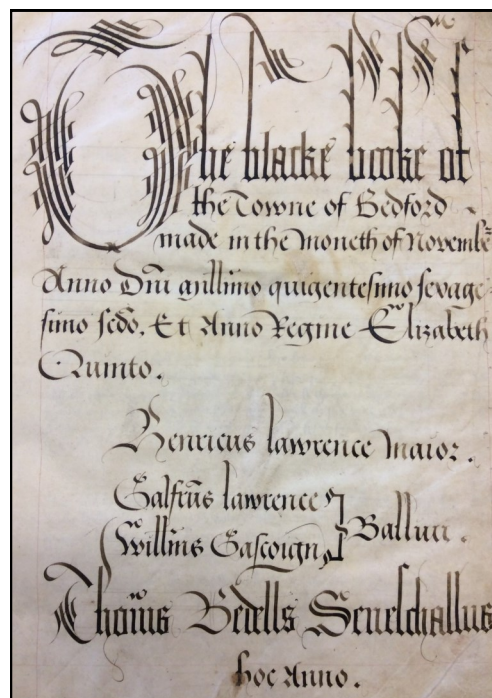 The blacke booke of
the Towne of Bedford
made in the moneth of Novembr
Anno Dñi millimo quigentesimo sexage-
simo sc̄do. Et Anno Regine Elizabeth
Quinto.
Henricus lawrence maior.
Galfrūs lawrence
Willm̄s Gascoign
Ballivi.
Thom̄s Bedells Senescallus
hoc Anno.